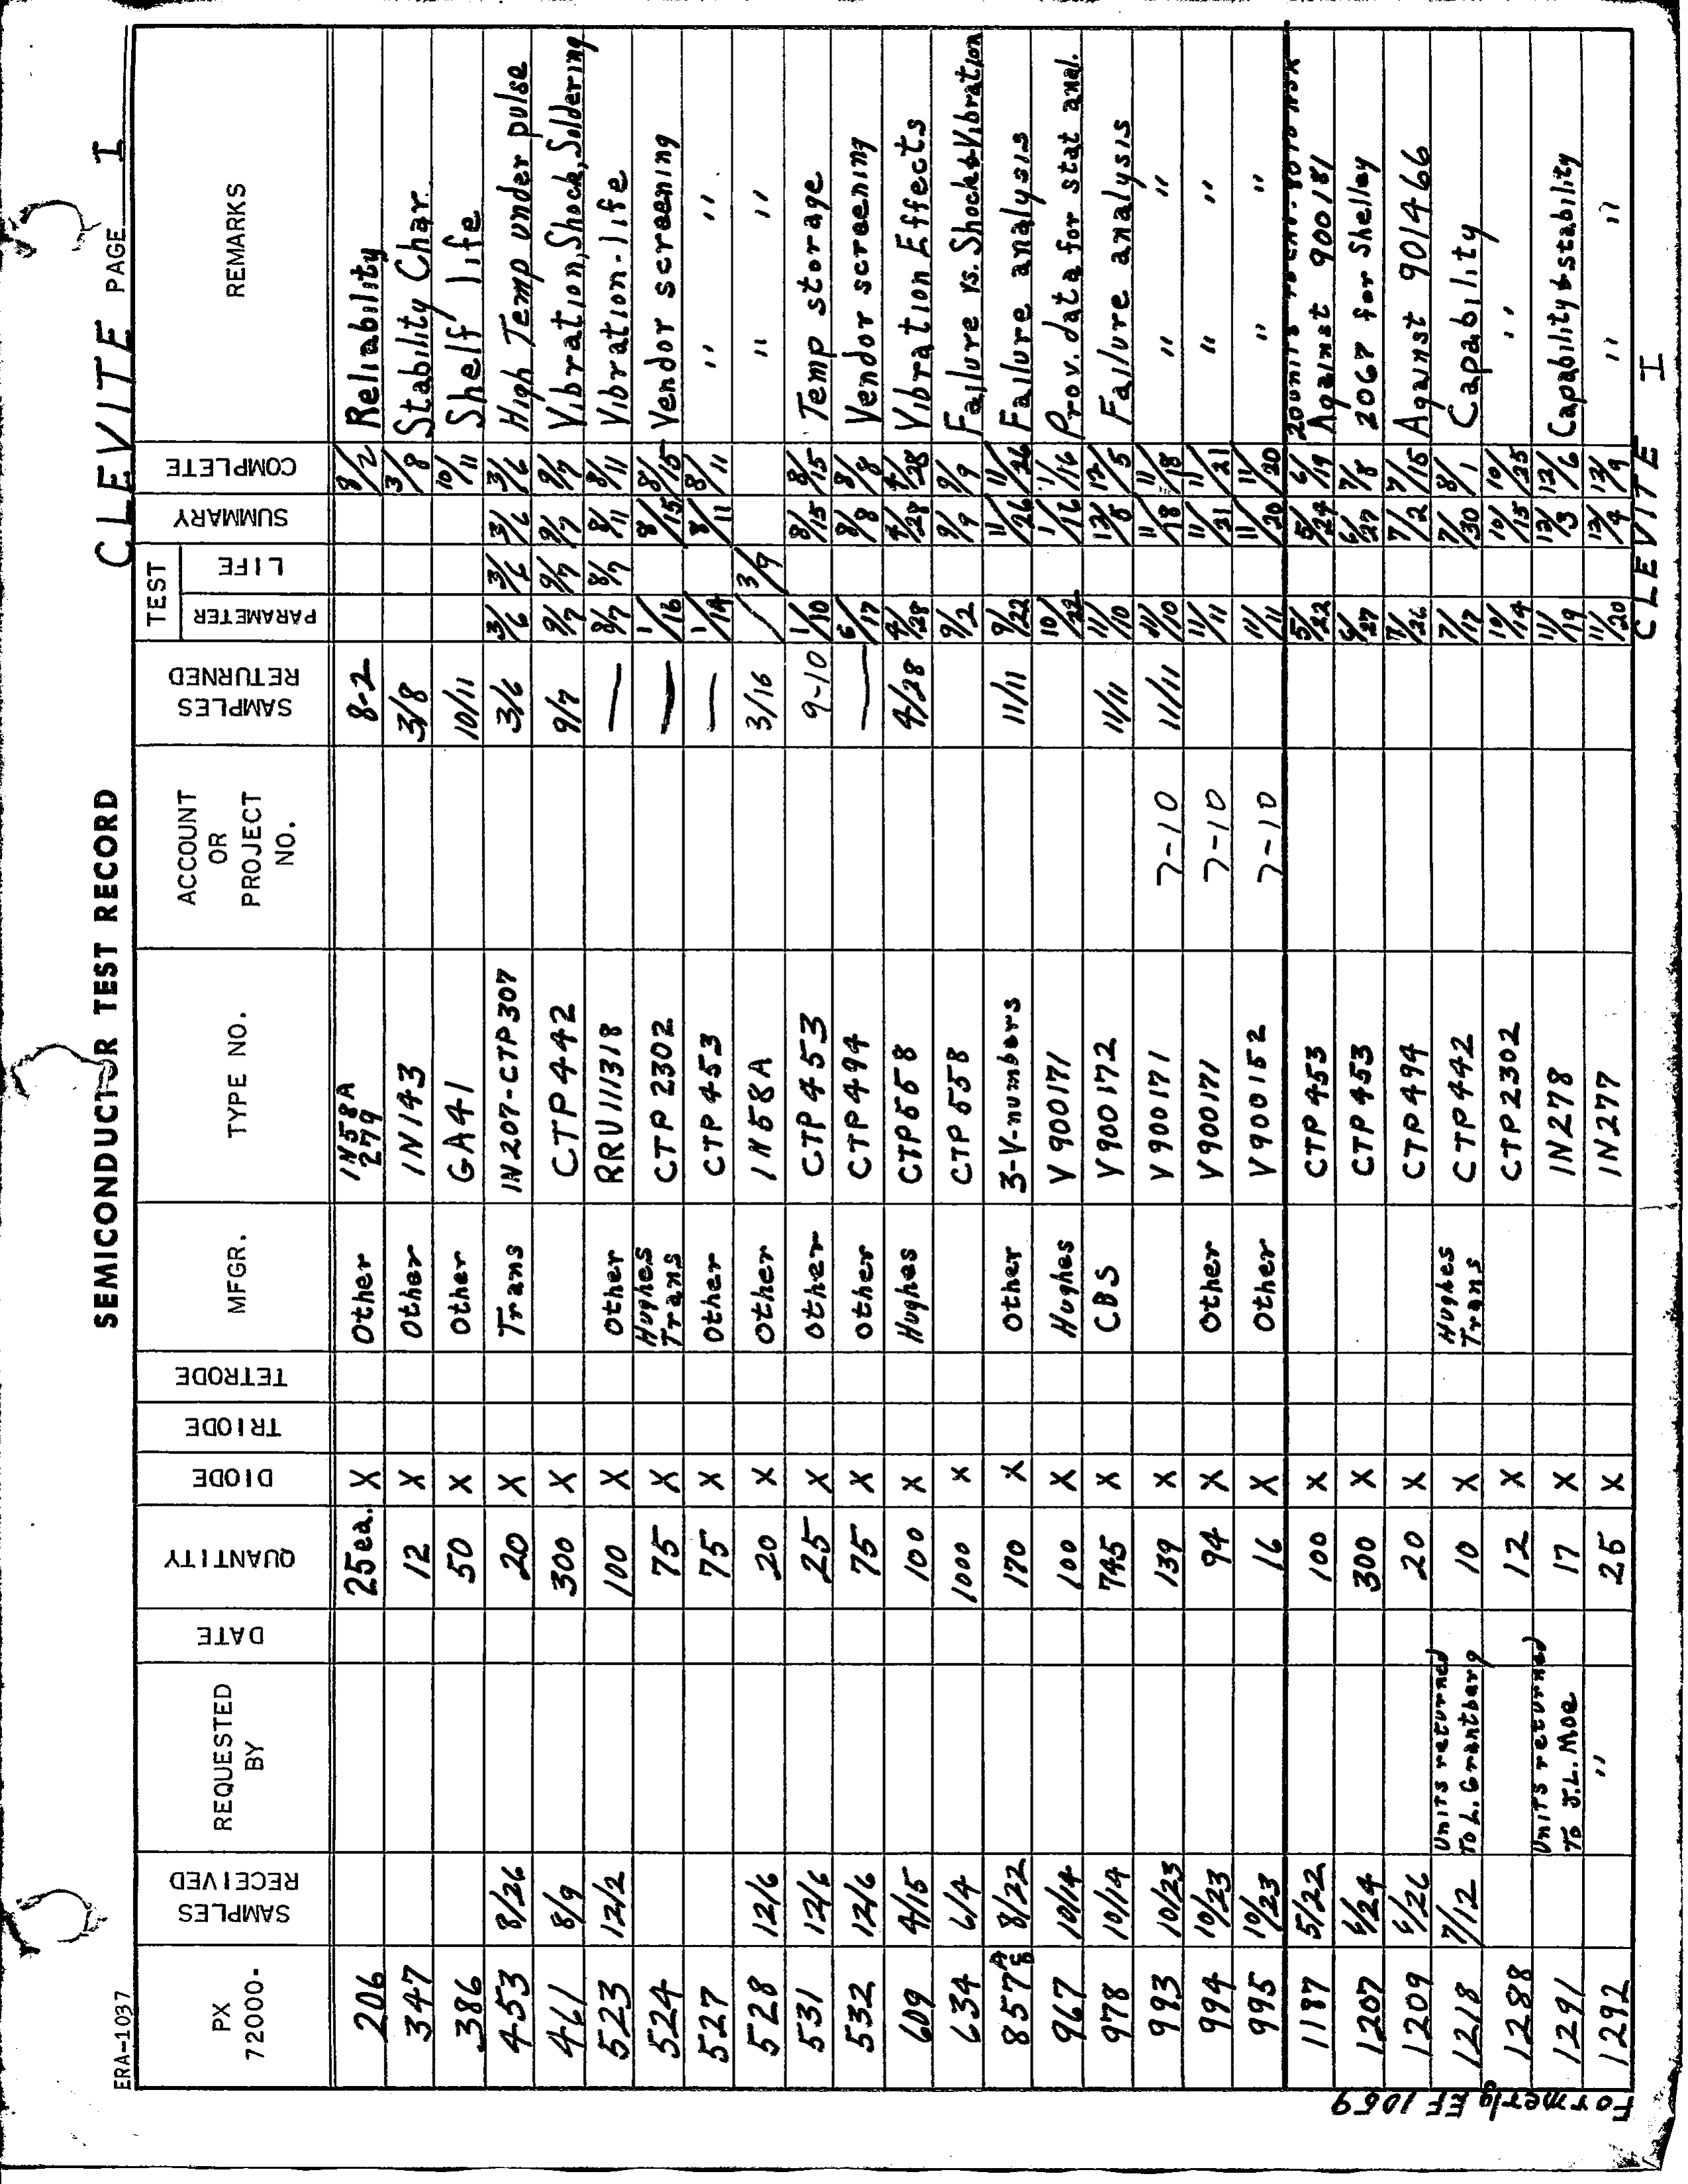 ERA-1037
SEMICONDUCTOR TEST RECORD
CLEVITE PAGE I
PX 72000- SAMPLES RECEIVED REQUESTED BY DATE QUANTITY DIODE TRIODE TETRODE MFGR. TYPE NO. ACCOUNT OR PROJECT NO. SAMPLES RETURNED TEST PARAMETER LIFE SUMMARY COMPLETE REMARKS
206 25ea. X Other 1N58A 279 8-2 8/2 Reliability
347 12 X Other 1N143 3/8 3/8 Stability Char.
386 50 X Other GA41 10/11 10/11 Shelf life
453 8/26 20 X Trans 1N207-CTP307 3/6 3/6 3/6 3/6 3/6 High Temp under pulse
461 8/9 300 X CTP442 9/7 9/7 9/7 9/7 9/7 Vibration, Shock, Soldering
523 12/2 100 X Other RRU111318 — 8/7 8/7 8/11 8/11 Vibration-life
524 75 X Hughes Trans CTP2302 — 1/16 8/15 8/15 Vendor screening
527 75 X Other CTP453 — 1/14 8/11 8/11 " "
528 12/6 20 X Other 1N58A 3/16 / 3/9 " "
531 12/6 25 X Other CTP453 9-10 1/10 8/15 8/15 Temp storage
532 12/6 75 X Other CTP494 — 6/17 8/8 8/8 Vendor screening
609 4/15 100 X Hughes CTP558 4/28 4/28 4/28 4/28 Vibration Effects
634 6/4 1000 X CTP558 9/2 9/9 9/9 Failure vs. Shock & Vibration
857 A B 8/22 170 X Other 3-V-numbers 11/11 9/22 11/26 11/26 Failure analysis
967 10/14 100 X Hughes V900171 10/22 1/16 1/16 Prov. data for stat anal.
978 10/14 745 X CBS V900172 11/11 11/10 12/5 12/5 Failure analysis
993 10/23 139 X V900171 7-10 11/11 11/10 11/18 11/18 " "
994 10/23 94 X Other V900171 7-10 11/11 11/21 11/21 " "
995 10/23 16 X Other V900152 7-10 11/11 11/20 11/20 " "
1187 5/22 100 X CTP453 5/22 5/24 6/19 Against 900181
1207 6/24 300 X CTP453 6/27 6/27 7/8 2067 for Shelley
1209 6/26 20 X CTP494 7/26 7/2 7/15 Against 901466
1218 7/12 Units returned To L. Grantberg 10 X Hughes Trans CTP442 7/17 7/30 8/1 Capability
1288 12 X CTP2302 10/14 10/15 10/25 "
1291 Units returned To J.L. Moe 17 X 1N278 11/19 12/3 12/6 Capability & stability
1292 " 25 X 1N277 11/20 12/4 12/9 " "
Formerly EF 1059
CLEVITE I